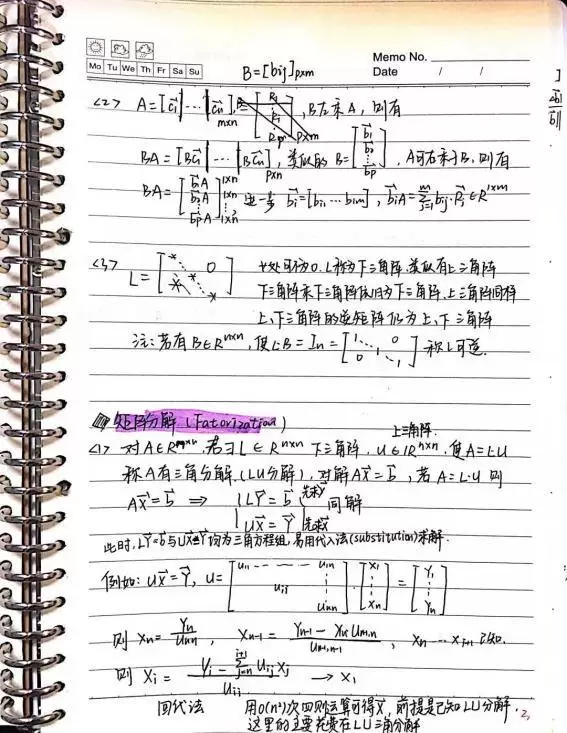 Mo Tu We Th Fr Sa Su
Memo No.
Date / /
B=[bij]p×m
<2> A=[c⃗1|···|c⃗n]m×n = [R1 ⋮ Ri ⋮ Rm]p×m, B左乘A, 则有
BA=[Bc⃗1|···|Bc⃗n]p×n, 类似的 B=[b⃗1 b⃗2 ⋮ b⃗p], A可右乘于B, 则有
BA=[b⃗1A b⃗2A ⋮ b⃗pA] 1×n 1×n ⋮ 1×n, 进一步 b⃗i=[bi1 ··· bim], b⃗iA=∑ᵐj=1 bij·R⃗j ∈R¹ˣᵐ
<3> L=[* 0 * *] *处可为0. L称为下三角阵. 类似有上三角阵
下三角阵乘下三角阵依旧为下三角阵, 上三角阵同样
上、下三角阵的逆矩阵仍为上、下三角阵
注: 若有B∈Rⁿˣⁿ, 使LB=In=[1 ··· 0 ⋮ 1 ⋮ 0 ··· 1] 称L可逆.
矩阵分解 (Fatorization)
上三角阵.
<1> 对A∈Rⁿˣⁿ, 若∃L∈Rⁿˣⁿ 下三角阵, U∈Rⁿˣⁿ, 使A=L·U
称A有三角分解 (LU分解), 对解AX⃗=b⃗, 若A=L·U 则
AX⃗=b⃗ ⇒ { LY⃗=b⃗ 先求Y⃗ 同解
UX⃗=Y⃗ 求X⃗
此时, LY⃗=b⃗与UX⃗=Y⃗均为三角方程组, 易用代入法(substitution)求解.
例如: UX⃗=Y⃗, U=[u11 ---- u1n uij unn]·[x1 ⋮ xn]=[Y1 ⋮ Yn]
则 xn=Yn/unn, xn-1=(Yn-1 - Xn Un-1,n)/Un-1,n-1, xn···xi+1 已知.
则 Xi=(Yi - ∑ⁱ⁺¹j=n Uij Xj)/Uii → x1
回代法 用O(n²)次四则运算可得X⃗, 前提是已知LU分解.
这里的主要花费在LU三角分解